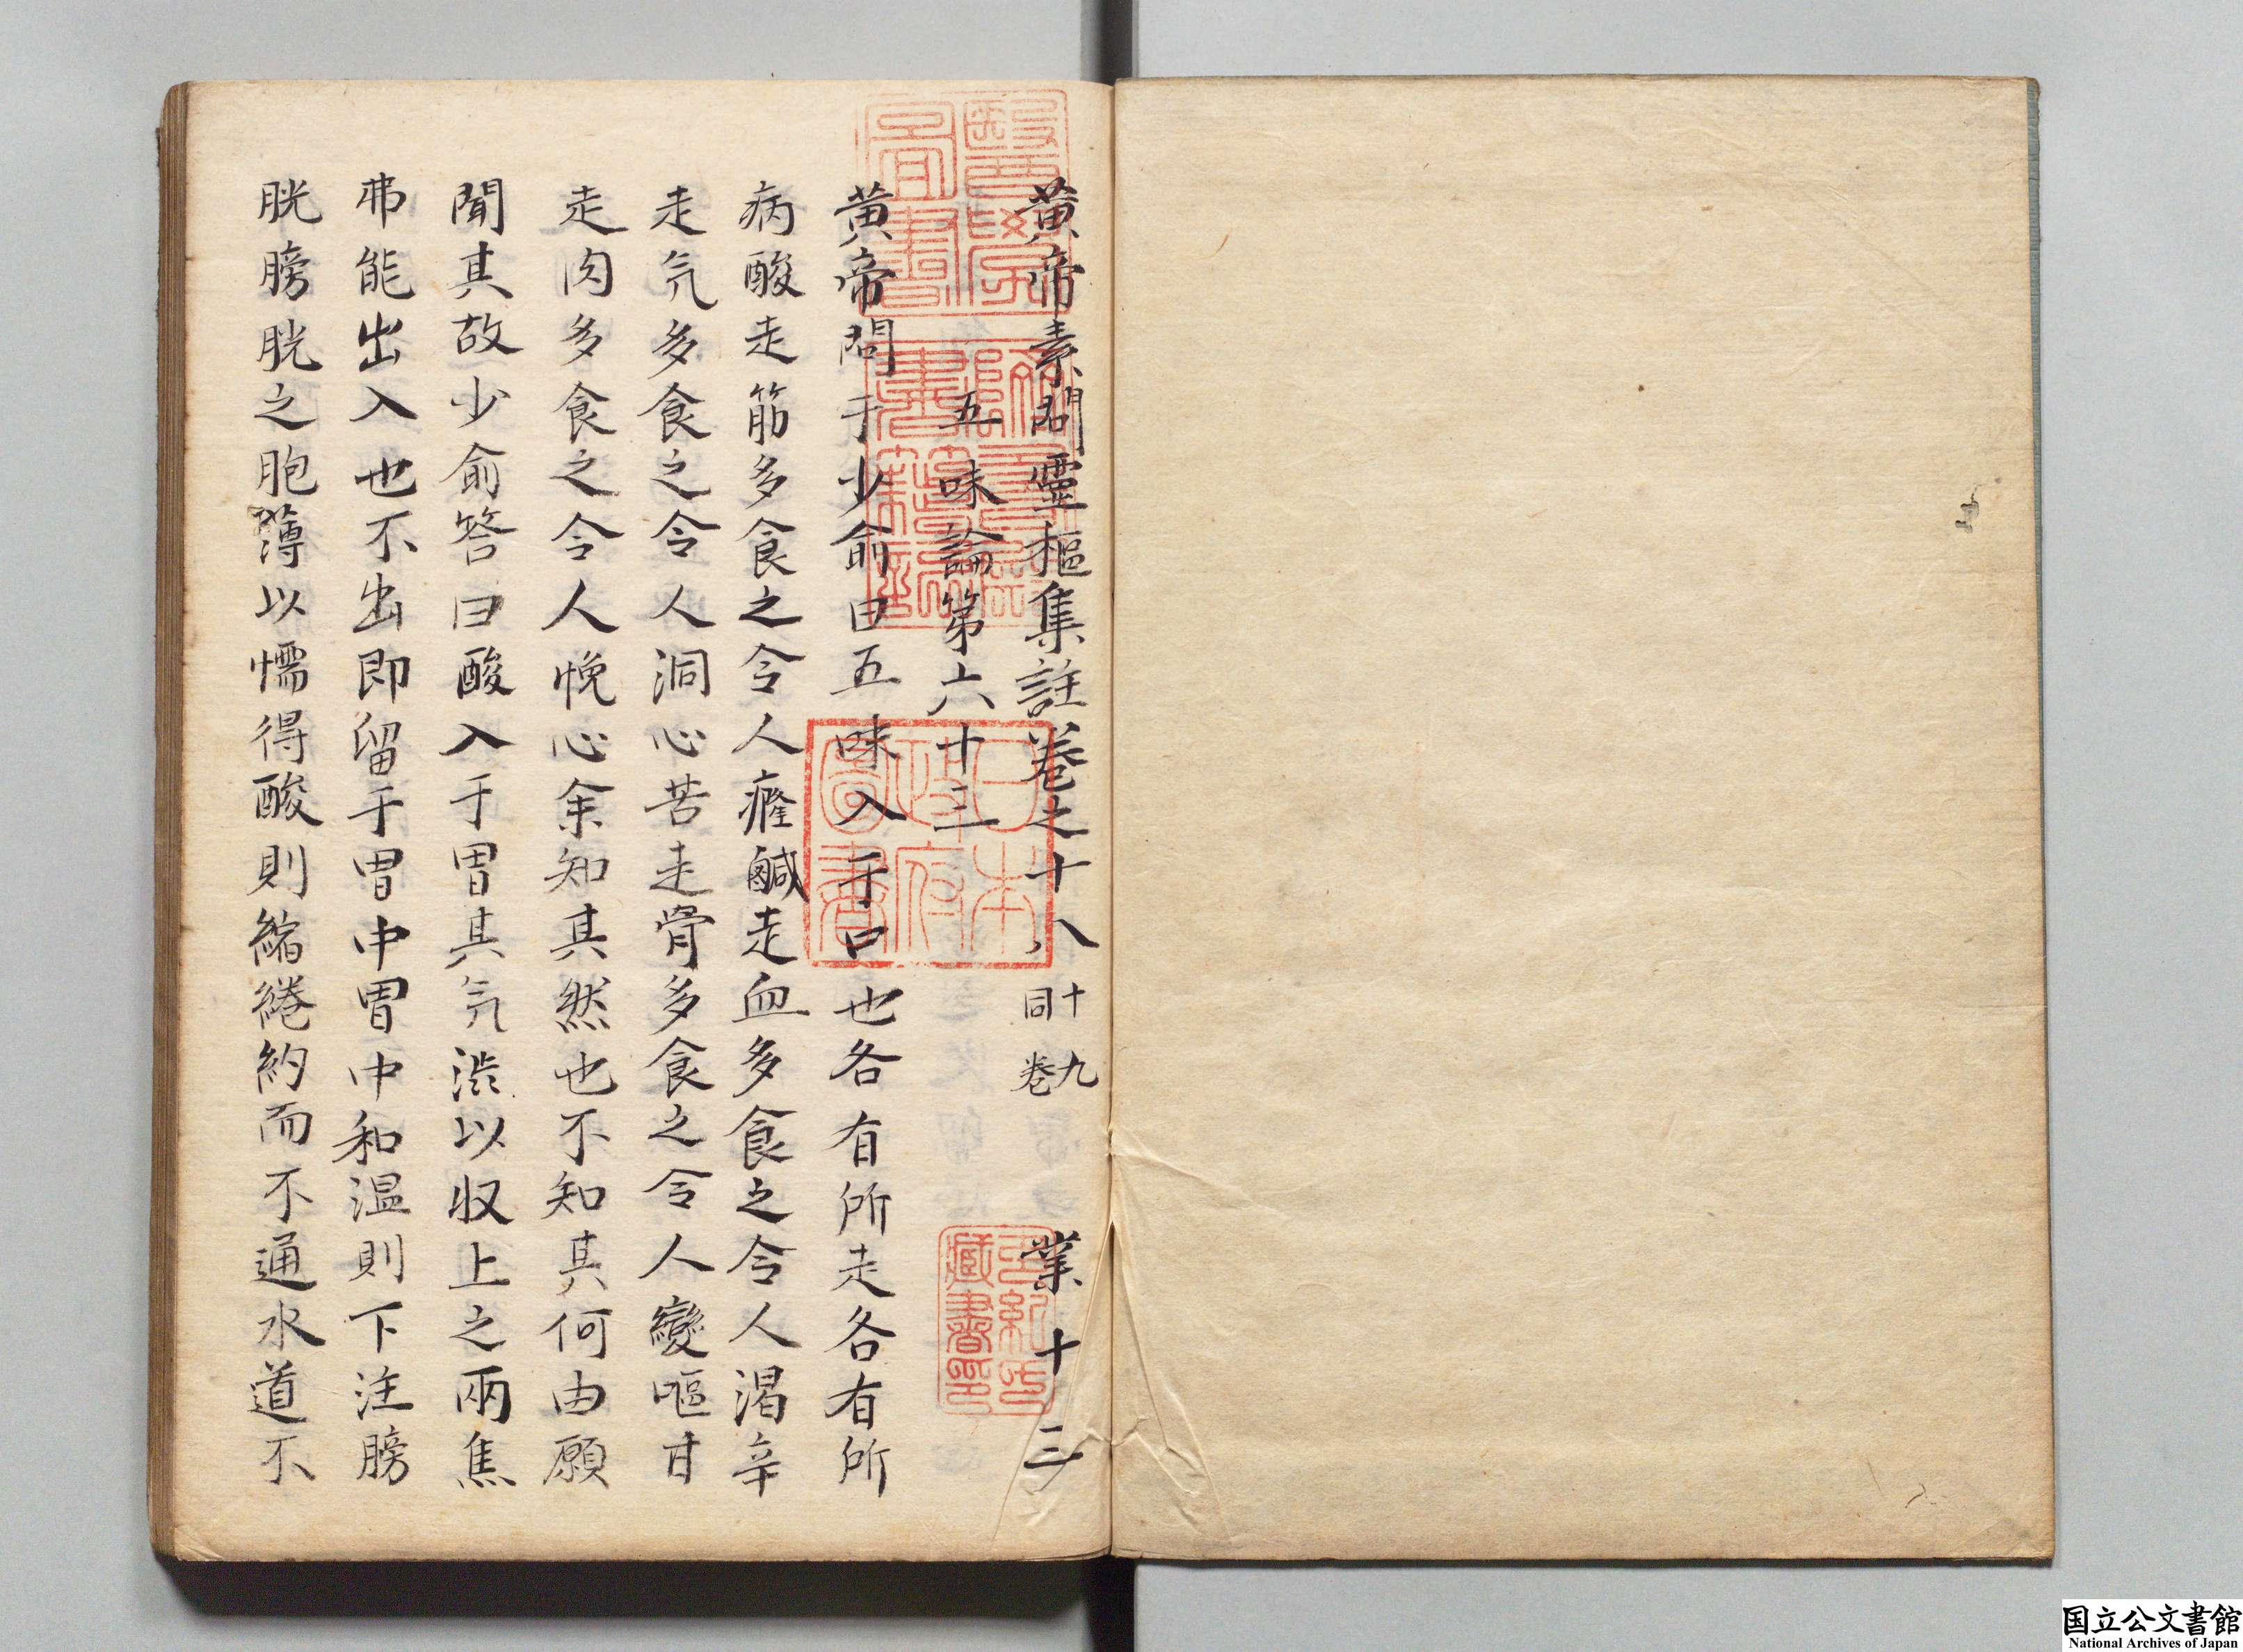 黄帝素問靈樞集註卷之十八 十九同卷 業十三
五味論第六十三
黄帝問于少俞曰五味入于口也各有所走各有所
病酸走筋多食之令人癃鹹走血多食之令人渴辛
走気多食之令人洞心苦走骨多食之令人變嘔甘
走肉多食之令人悗心余知其然也不知其何由願
聞其故少俞答曰酸入于胃其気渋以収上之兩焦
弗能出入也不出即留于胃中胃中和温則下注膀
胱膀胱之胞薄以懦得酸則縮綣約而不通水道不
醫學圖書
躋壽殿書籍記
日本政府圖書
藏書印
国立公文書館
National Archives of Japan